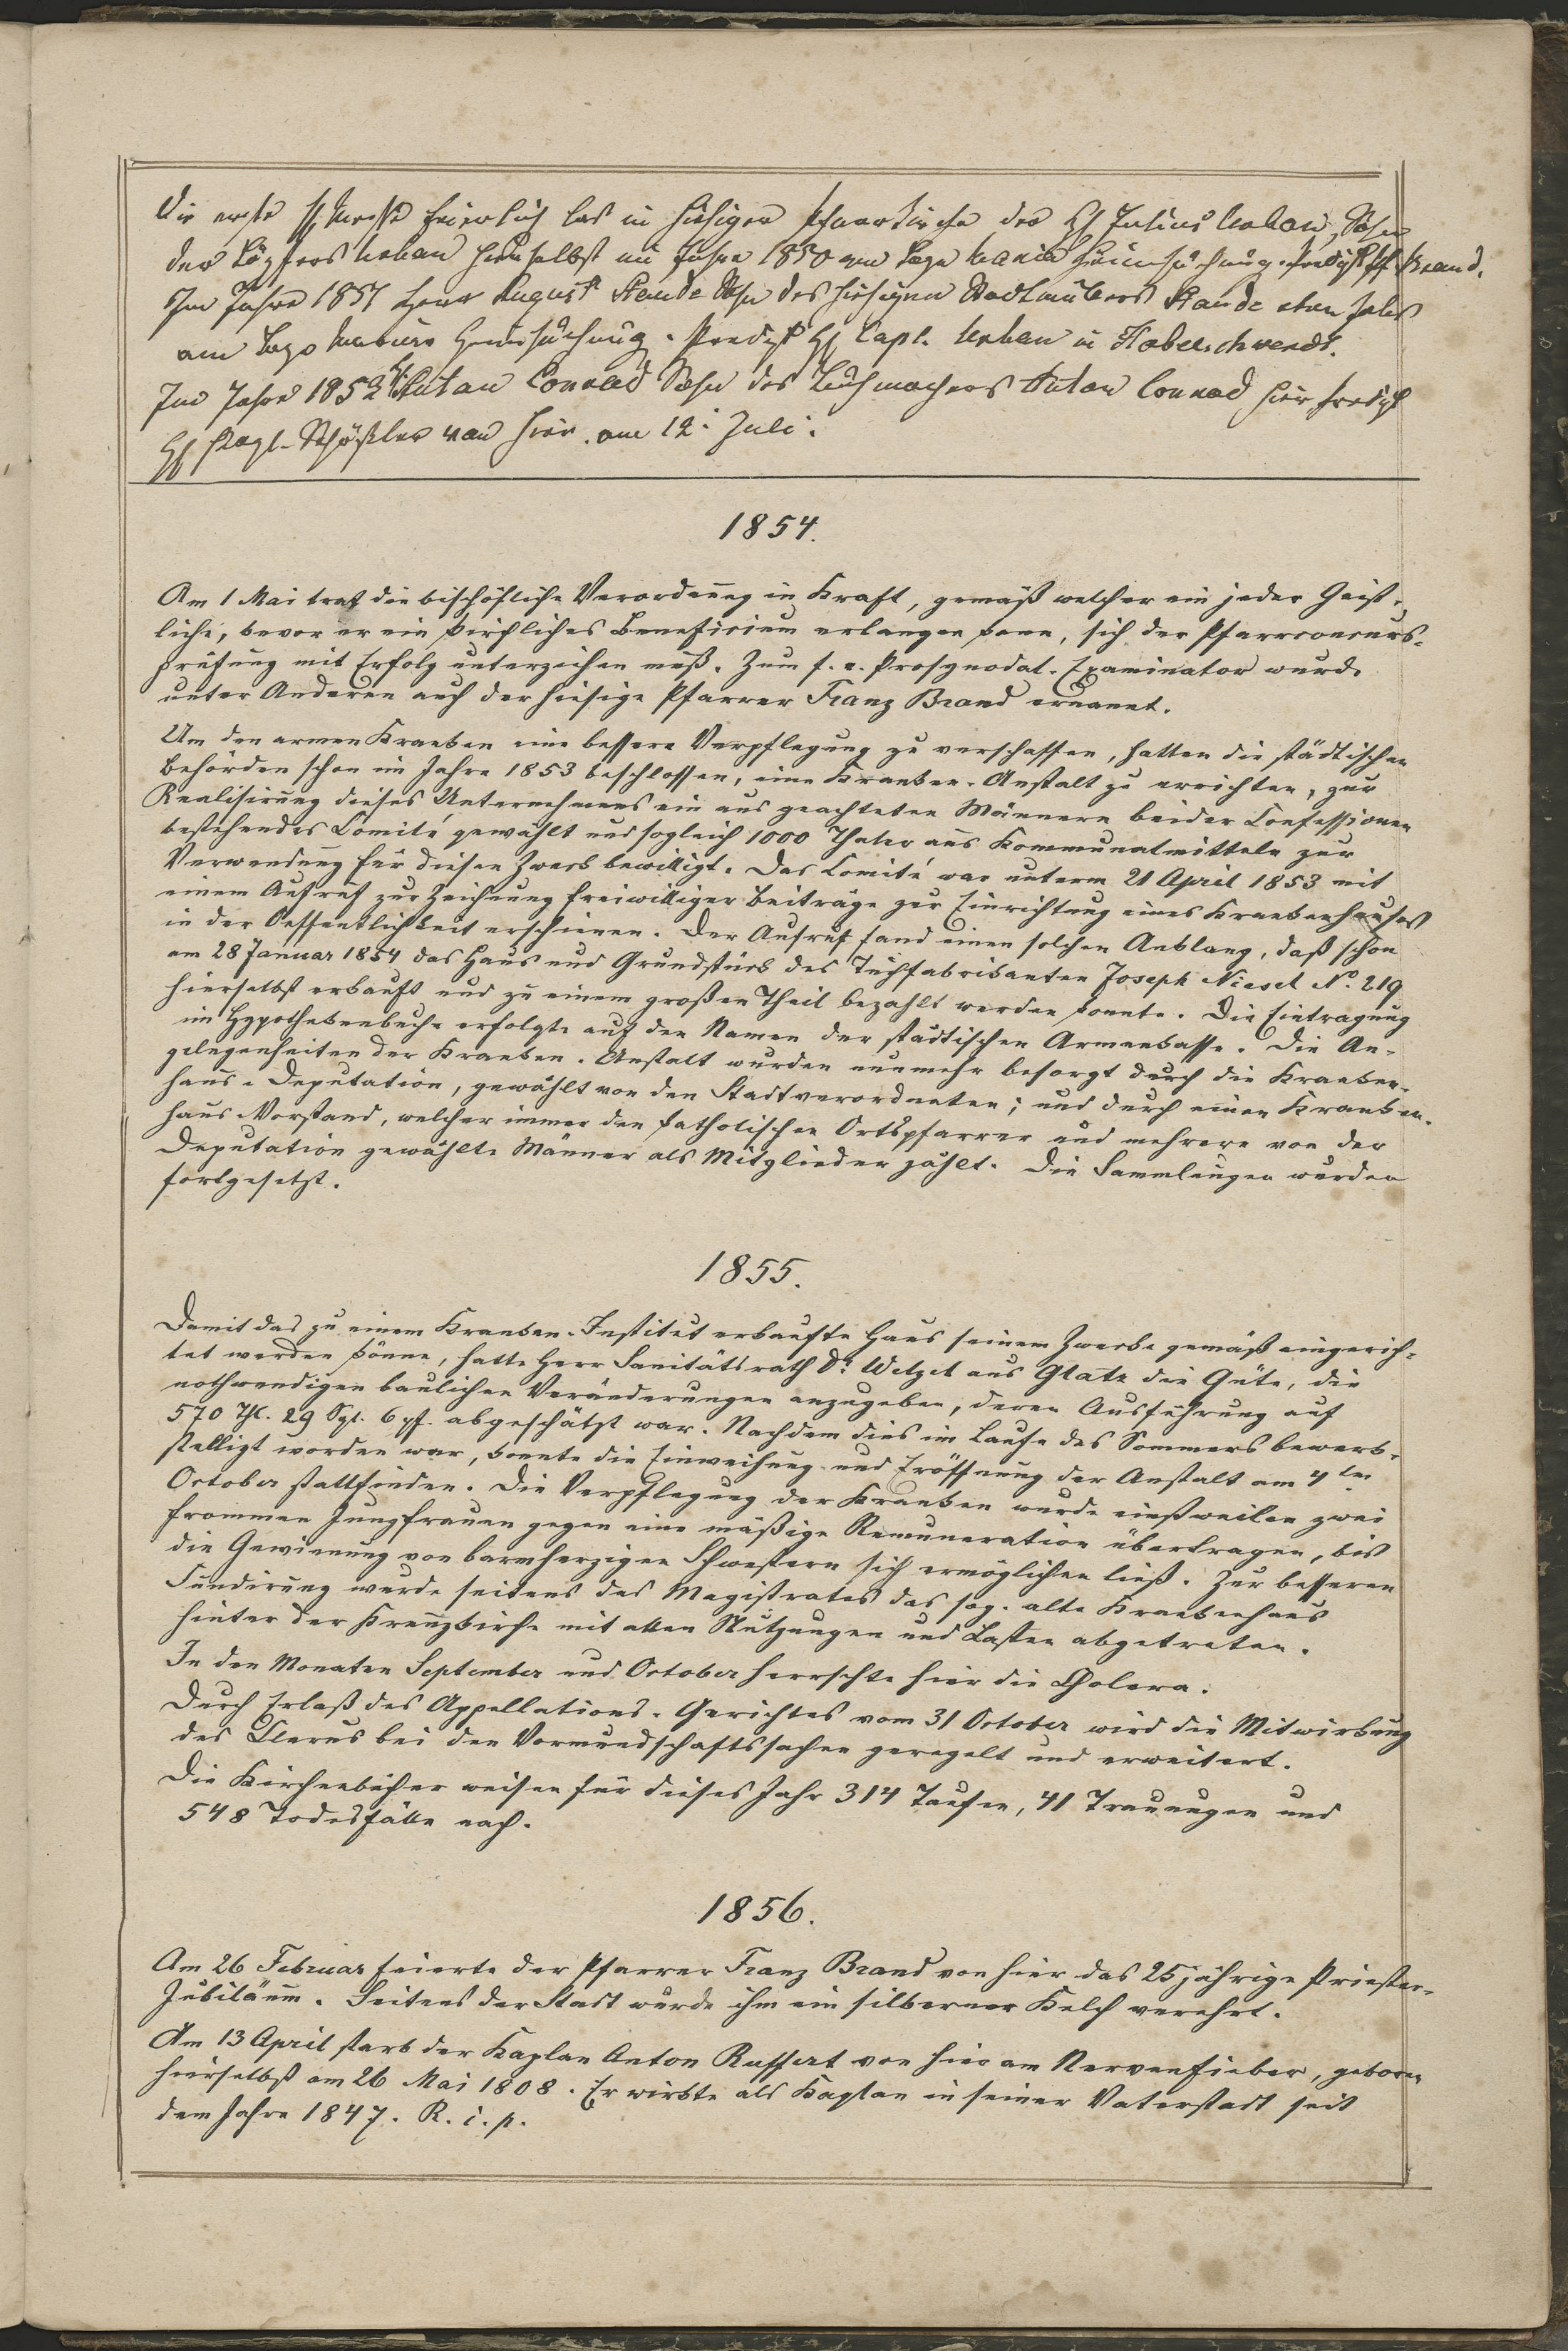 Die erste H. Messe feierlich las in hiesiger Pfarrkirche der H. Julius Urban, Sohn
des Töpfers Urban hierselbst im Jahre 1850 am Tage Mariä Heimsuchung. Predigt Pf. Brand.
Im Jahre 1851 Herr August Stande Sohn des hiesigen Stande
am Tage Mariä Heimsuchung. Predigt H. Capl. Urban in Habelschwerdt.
Im Jahre 1852 H. Anton Conrad Sohn des Tuchmachers Anton Conrad hier Predigt
H. Kapl. Schößler von hier. am 12. Juli.
1854.
Am 1 Mai trat die bischöfliche Verordnung in Kraft, gemäß welcher ein jeder Geist-
liche, bevor er ein kirchliches Beneficium erlangen kann, sich der Pfarrconcurs-
prüfung mit Erfolg unterziehen muß. Zum f. e. Prosynodal-Examinator wurde
unter Anderen auch der hiesige Pfarrer Franz Brand ernannt.
Um den armen Kranken eine bessere Verpflegung zu verschaffen, hatten die städtischen
Behörden schon im Jahre 1853 beschlossen, eine Kranken-Anstalt zu errichten, zur
Realisirung dieses Unternehmens ein aus geachteten Männern beider Confessionen
bestehendes Comité gewählt und sogleich 1000 Thaler aus Kommunalmitteln zur
Verwendung für diesen Zweck bewilligt. Das Comité war unterm 21 April 1853 mit
einem Aufruf zur Zeichnung freiwilliger Beiträge zur Einrichtung eines Krankenhauses
in der Oeffentlichkeit erschienen. Der Aufruf fand einen solchen Anklang, daß schon
am 28 Januar 1854 das Haus und Grundstück des Tuchfabrikanten Joseph Niesel No. 219
hierselbst erkauft und zu einem großen Theil bezahlt werden konnte. Die Eintragung
im Hypothekenbuche erfolgte auf den Namen der städtischen Armenkasse. Die An-
gelegenheiten der Kranken-Anstalt wurden nunmehr besorgt durch die Kranken-
haus-Deputation, gewählt von den Stadtverordneten; und durch einen Kranken-
haus-Vorstand, welcher immer den katholischen Ortspfarrer und mehrere von der
Deputation gewählte Männer als Mitglieder zählt. Die Sammlungen wurden
fortgesetzt.
1855.
Damit das zu einem Kranken-Institut erkaufte Haus seinem Zwecke gemäß eingerich-
tet werden könne, hatte Herr Sanitätsrath Dr. Welzel aus Glatz die Güte, die
nothwendigen baulichen Veränderungen anzugeben, deren Ausführung auf
570 Thl. 29 Sgl. 6 pf. abgeschätzt war. Nachdem dies im Laufe des Sommers bewerk-
stelligt worden war, konnte die Einweihung und Eröffnung der Anstalt am 4ten
October stattfinden. Die Verpflegung der Kranken wurde einstweilen zwei
frommen Jungfrauen gegen eine mäßige Remuneration übertragen, bis
die Gewinnung von barmherzigen Schwestern sich ermöglichen ließ. Zur besseren
Fundirung wurde seitens des Magistrates das sog. alte Krankenhaus
hinter der Kreuzkirche mit allen Nutzungen und Lasten abgetreten.
In den Monaten September und October herrschte hier die Cholera.
Durch Erlaß des Appellations-Gerichtes vom 31 October wird die Mitwirkung
des Clerus bei den Vormundschaftssachen geregelt und erweitert.
Die Kirchenbücher weisen für dieses Jahr 314 Taufen, 41 Trauungen und
548 Todesfälle nach.
1856.
Am 26 Februar feierte der Pfarrer Franz Brand von hier das 25jährige Priester-
Jubiläum. Seitens der Stadt wurde ihm ein silberner Kelch verehrt.
Am 13 April starb der Kaplan Anton Ruffert von hier am Nervenfieber, geboren
hierselbst am 26 Mai 1808. Er wirkte als Kaplan in seiner Vaterstadt seit
dem Jahre 1847. R. i. p.